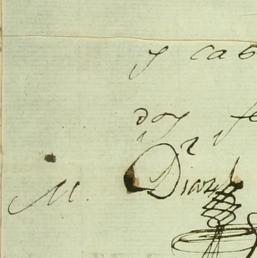 y cas
doy fe
M. Diaz